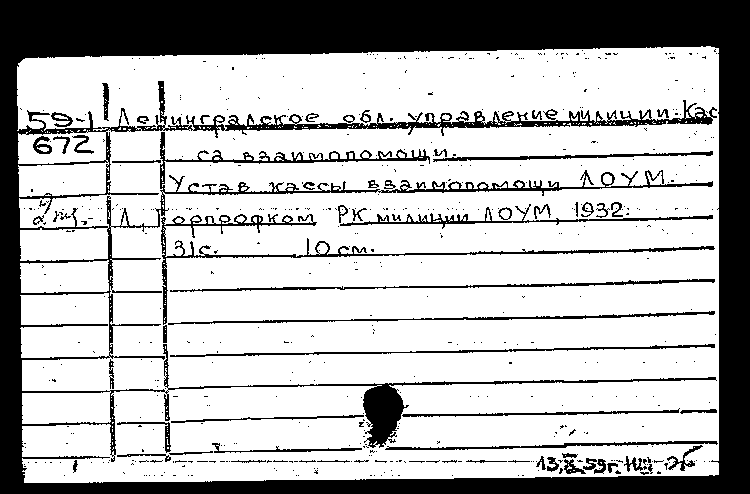 59-1 Ленинградское обл. управление милиции. Кас
672 са взаимопомощи.
Устав кассы взаимопомощи ЛОУМ.
2 экз. Л., Горпрофком РК милиции ЛОУМ, 1932.
31с. 10 см.
13.X.59г.